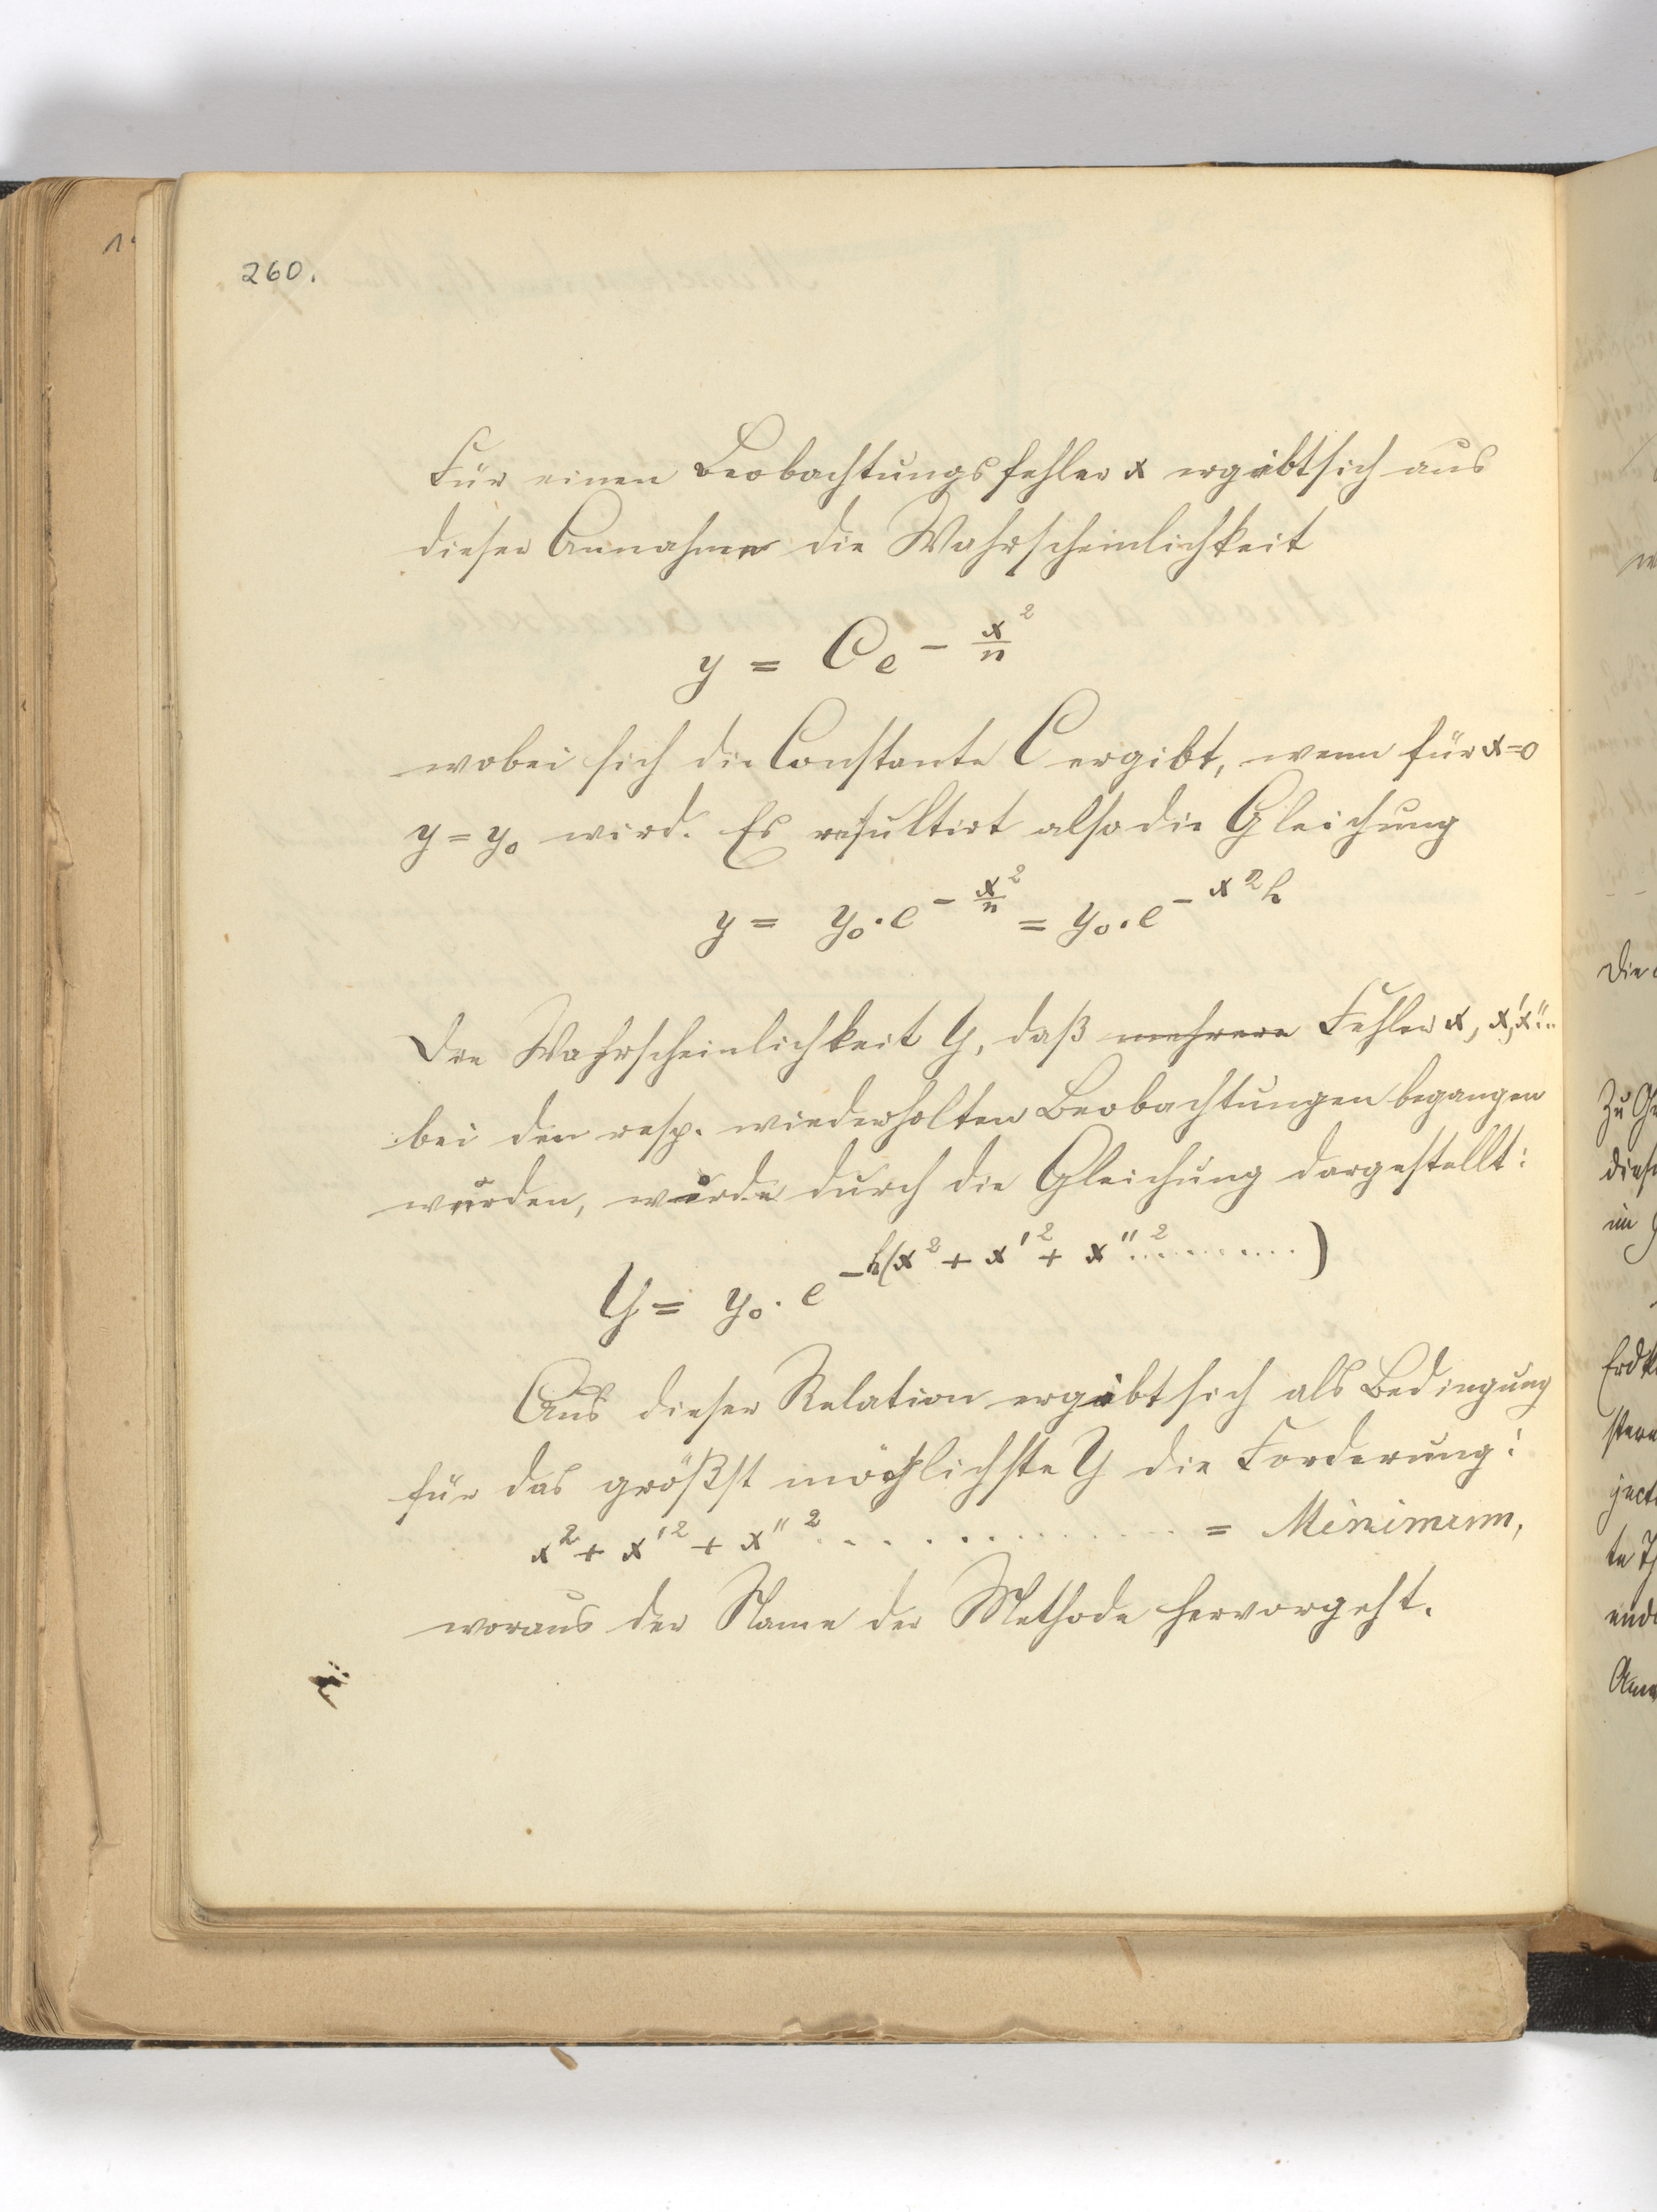 260.
Für einen Beobachtungsfehler x ergibt sich aus
dieser Annahme die Wahrscheinlichkeit
y = C e^{- \frac{x^2}{n}}
wobei sich die Constante C ergibt, wenn für x=0
y = y₀ wird. Es resultirt also die Gleichung
y = y₀ · e^{- \frac{x^2}{n}} = y₀ · e^{- x^2 h}
Die Wahrscheinlichkeit Y, daß mehrere Fehler x, x', x''...
bei den resp. wiederholten Beobachtungen begangen
wurden, wurde durch die Gleichung dargestellt:
Y = y₀ · e^{-h(x² + x'² + x''² ..........)}
Aus dieser Relation ergibt sich als Bedingung
für das größst möglichste Y die Forderung:
x² + x'² + x''² . . . . . . . . . . . . . . = Minimum,
woraus der Name der Methode hervorgeht.